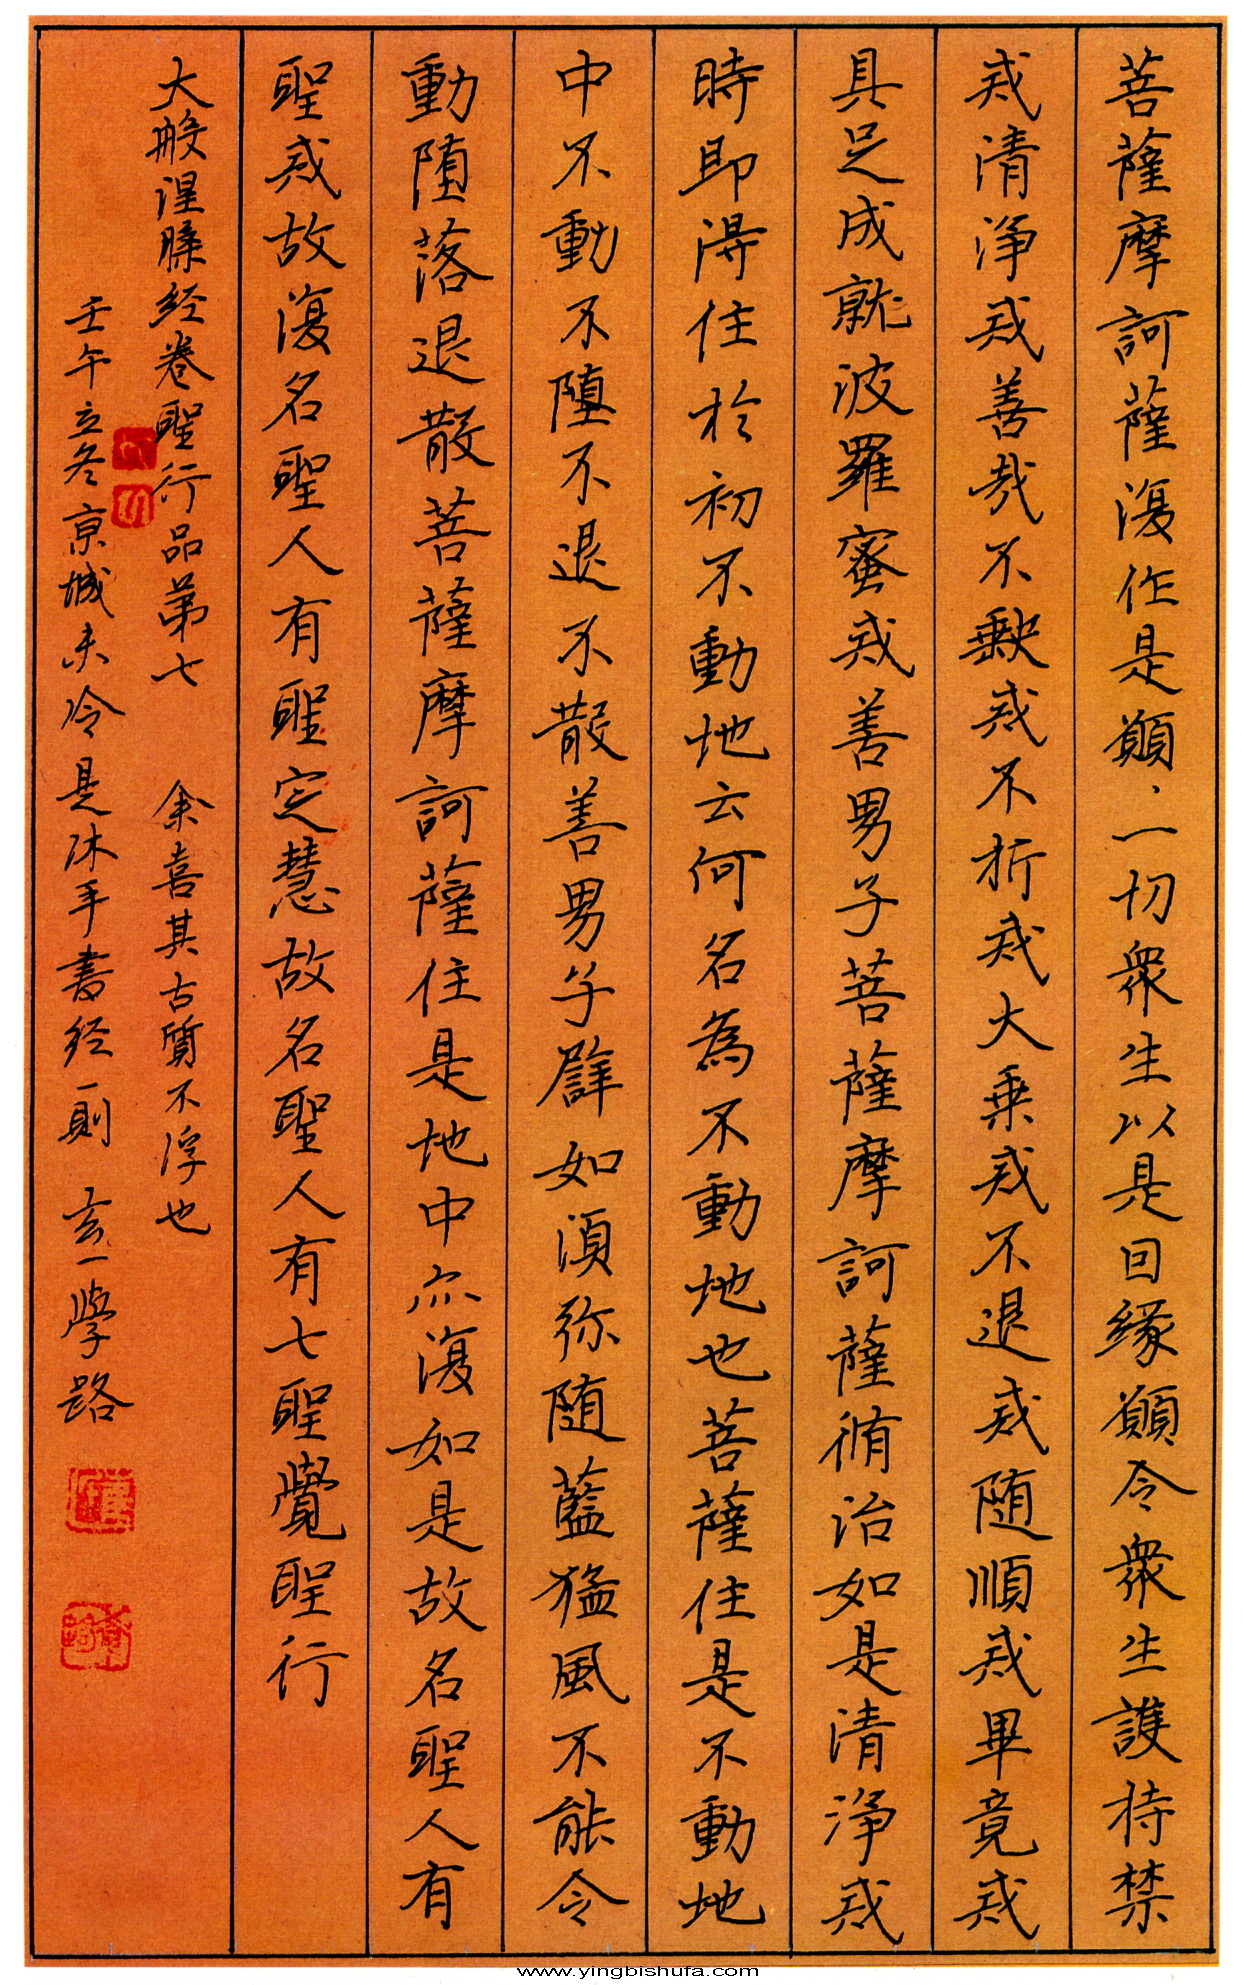 菩薩摩訶薩復作是願、一切衆生以是因緣願令衆生護持禁
戒清淨戒善哉不缺戒不析戒大乘戒不退戒随順戒畢竟戒
具足成就波羅蜜戒善男子菩薩摩訶薩脩治如是清淨戒
時即得住於初不動地云何名為不動地也菩薩住是不動地
中不動不墮不退不散善男子譬如須弥随藍猛風不能令
動堕落退散菩薩摩訶薩住是地中亦復如是故名聖人有
聖戒故復名聖人有聖定慧故名聖人有七聖覺聖行
大般涅槃经卷聖行品第七 余喜其古質不浮也
壬午立冬京城未冷是沐手書经一則 玄一學路
www.yingbishufa.com